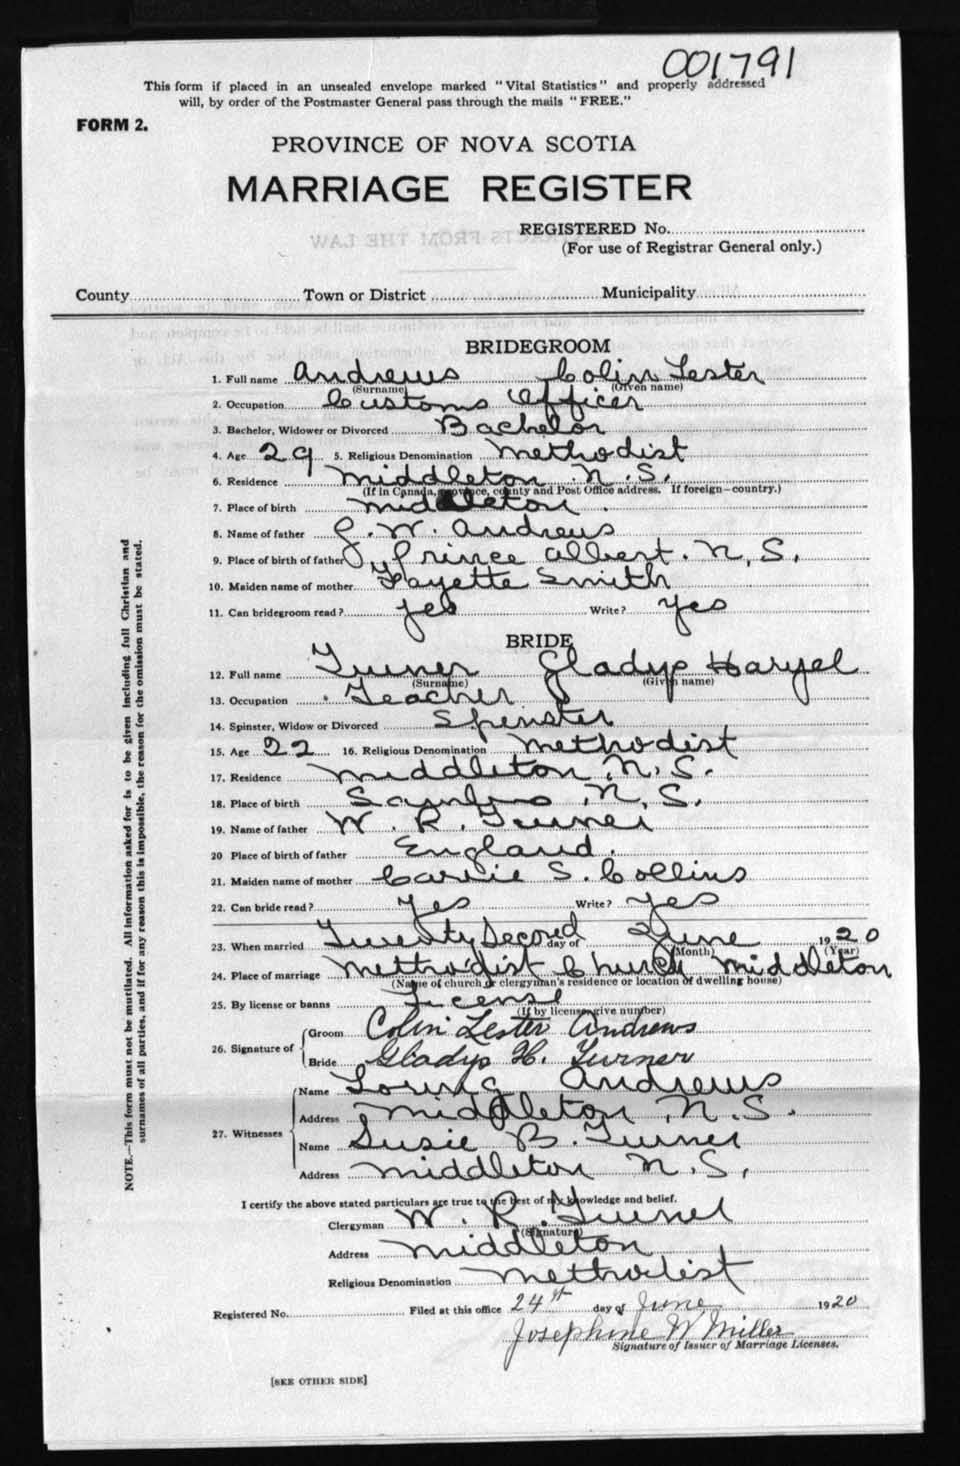 001791
This form if placed in an unsealed envelope marked "Vital Statistics" and properly addressed
will, by order of the Postmaster General pass through the mails "FREE."
FORM 2.
PROVINCE OF NOVA SCOTIA
MARRIAGE REGISTER
REGISTERED No.
(For use of Registrar General only.)
EXTRACTS FROM THE LAW
County Town or District Municipality
BRIDEGROOM
1. Full name Andrews Colin Lester
(Surname) (Given name)
2. Occupation Customs Officer
3. Bachelor, Widower or Divorced Bachelor
4. Age 29 5. Religious Denomination Methodist
6. Residence Middleton N.S.
(If in Canada, province, county and Post Office address. If foreign—country.)
7. Place of birth Middleton.
8. Name of father J. W. Andrews
9. Place of birth of father Prince Albert. N.S.
10. Maiden name of mother Fayette Smith
11. Can bridegroom read? yes Write? yes
BRIDE
12. Full name Turner Gladys
(Surname) (Given name)
13. Occupation Teacher
14. Spinster, Widow or Divorced Spinster
15. Age 22 16. Religious Denomination Methodist
17. Residence Middleton, N.S.
18. Place of birth N.S.
19. Name of father W. R. Turner
20 Place of birth of father England.
21. Maiden name of mother Carrie S. Collins
22. Can bride read? yes Write? yes
23. When married Twenty Second day of June 1920
(Month) (Year)
24. Place of marriage Methodist Church Middleton
(Name of church or clergyman's residence or location of dwelling house)
25. By license or banns License
(If by license, give number)
26. Signature of Groom Colin Lester Andrews
Bride Gladys H. Turner
27. Witnesses Name Loring Andrews
Address Middleton N.S.
Name Susie B. Turner
Address Middleton N.S.
I certify the above stated particulars are true to the best of my knowledge and belief.
Clergyman W. R. Turner
(Signature)
Address Middleton
Religious Denomination Methodist
Registered No. Filed at this office 24st day of June 1920
Josephine W Miller
Signature of Issuer of Marriage Licenses.
[SEE OTHER SIDE]
NOTE.—This form must not be mutilated. All information asked for is to be given including full Christian and
surnames of all parties, and if for any reason this is impossible, the reason for the omission must be stated.